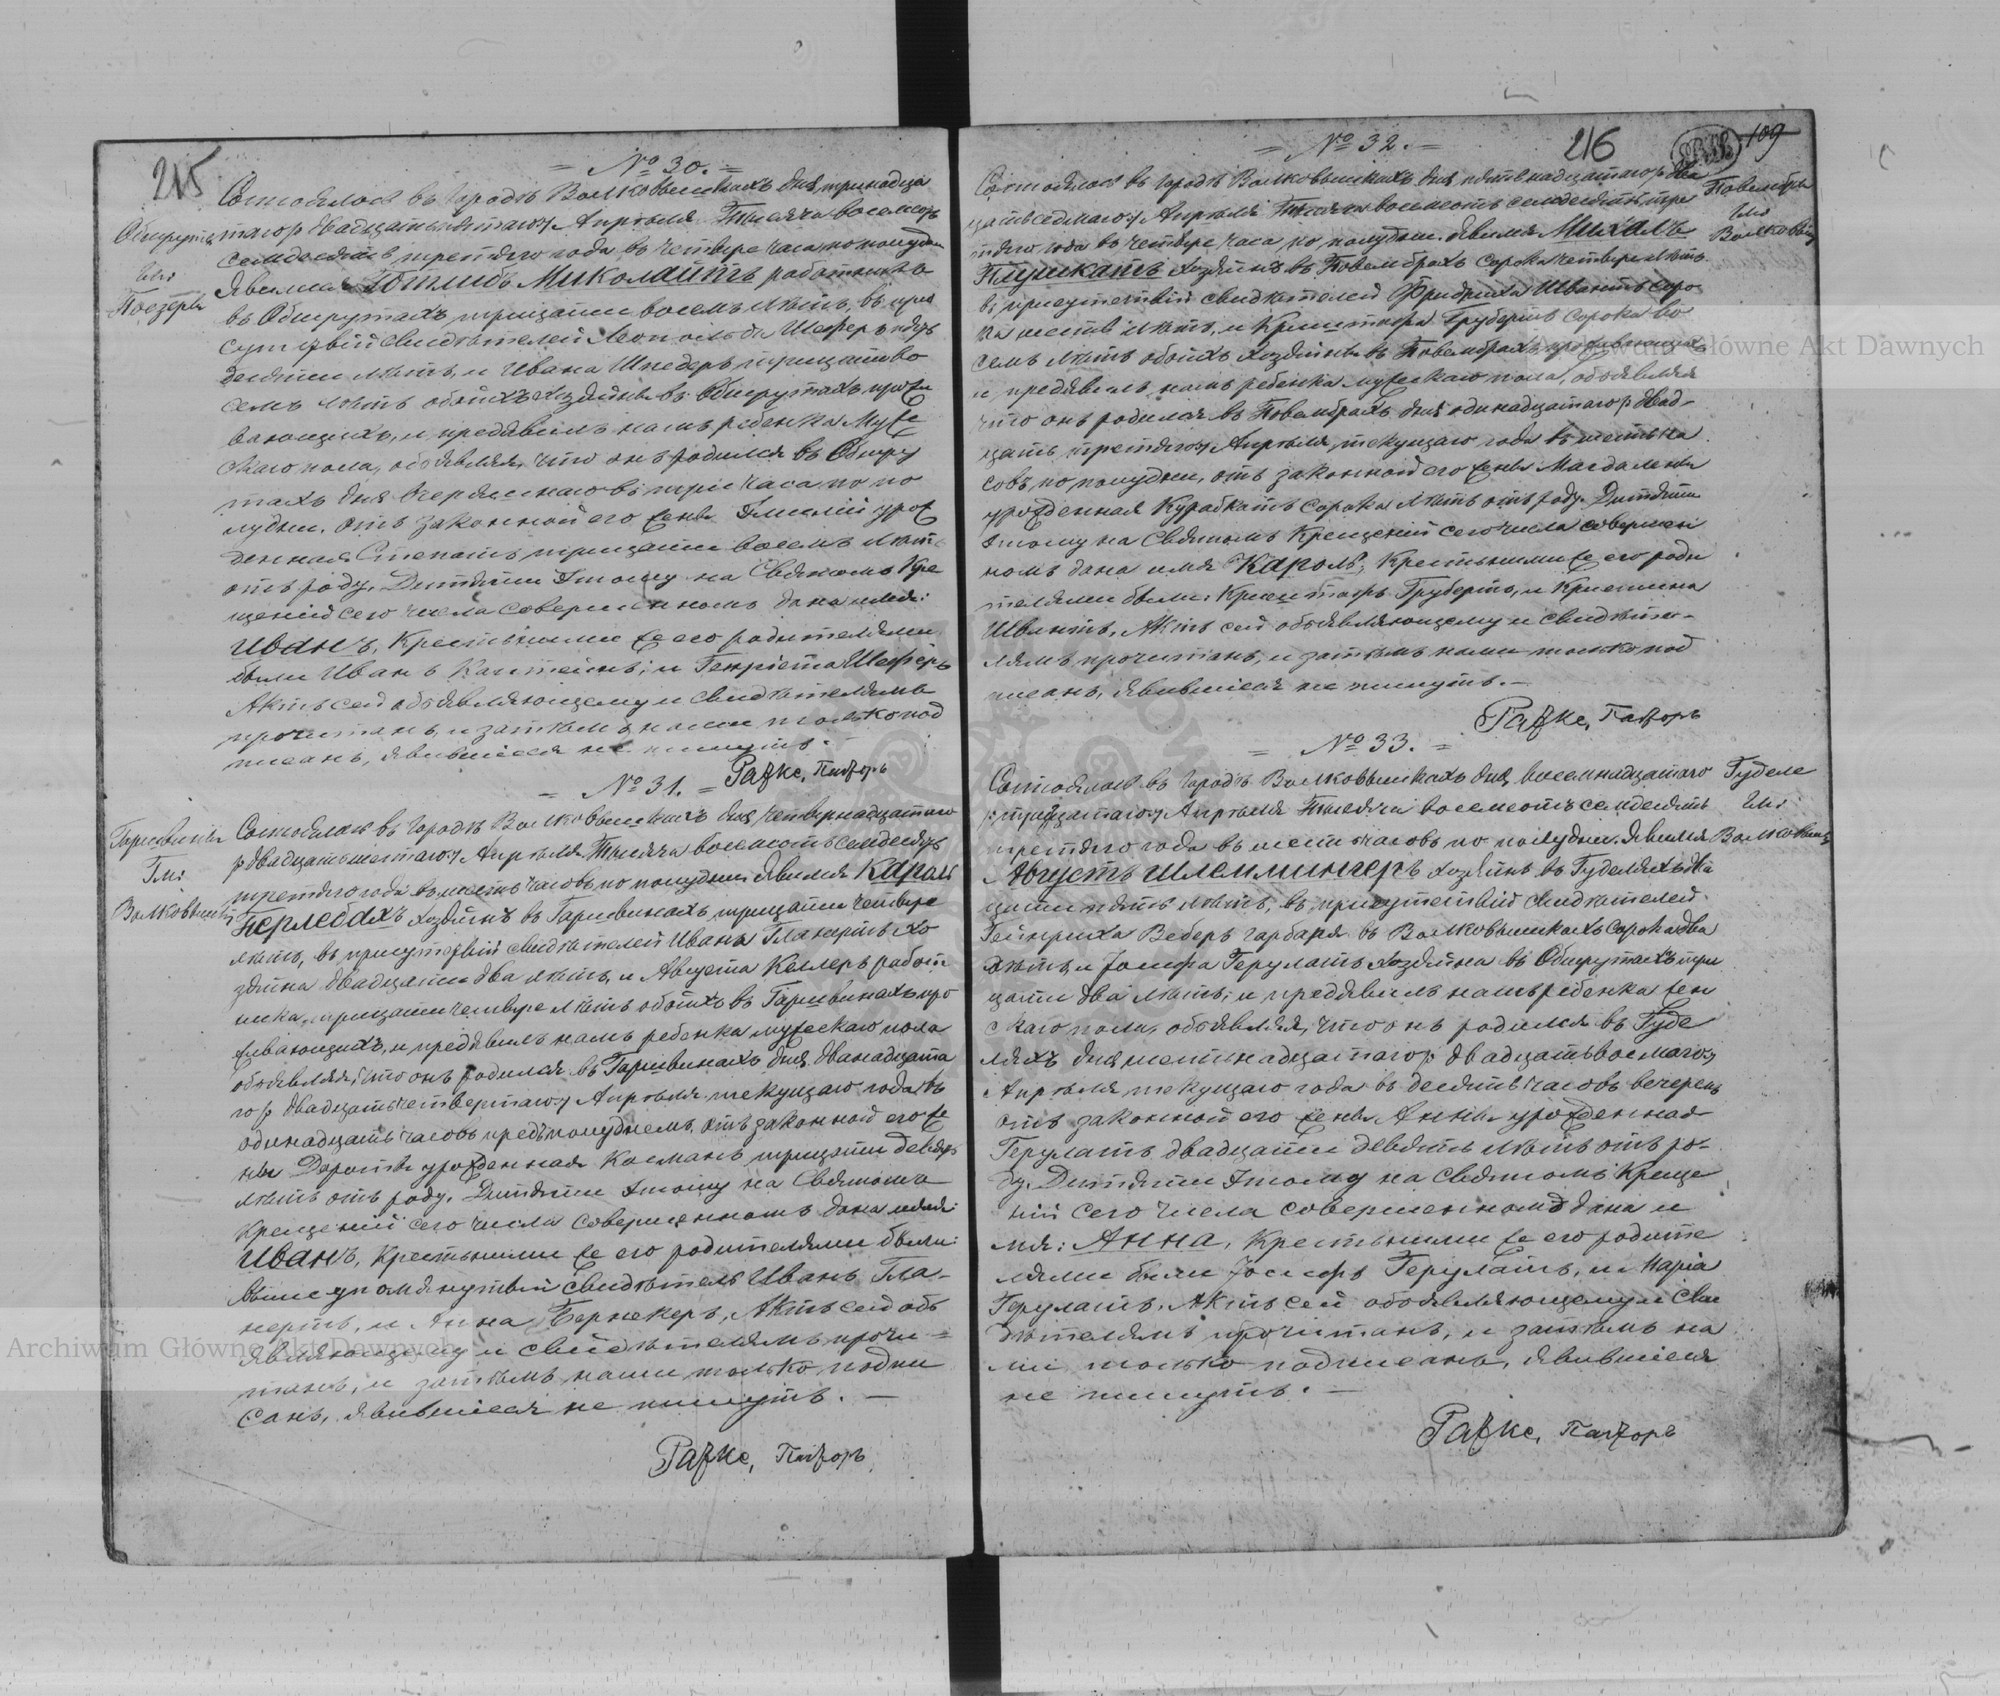 215
= № 30. =
Обшруты
Гми:
Поезеры
Состоялось въ городѣ Волковышкахъ дня, тринадца
таго /: двадцать пятаго :/ Апрѣля Тысяча восемсотъ
семдесятъ третяго года въ четвере часа по полудни
Явился Готлибъ Миколайтъ работникъ
въ Обшрутахъ тридцати восемъ лѣтъ, въ при
сутствій свидѣтелей Леопольда Шеферъ
десяти лѣтъ, и Ивана Шнедеръ тридцати во
семъ лѣтъ обойхъ хозяйновъ въ Обшрутахъ прожи
вающихъ, и предявилъ намъ ребенка муже
скаго пола, обӧявляя, что онъ родился въ Обшру
тахъ дня вчерашнаго въ три часа по по
лудни, отъ законной его жены Эмилій урож
денная Степатъ тридцати восемъ лѣтъ
отъ роду. Дитяти Этому на Святомъ Кре
щеній сего числа совершенномъ дано имя:
Иванъ, Крестными же его родителями
были Иванъ Капстейнъ, и Генріета Шеферъ
Актъ сей обӧявляющему и свидѣтелямъ
прочитанъ, и затѣмъ нами только под
писанъ, явившіеся не пишутъ. —
Рафке, Пасторъ
= № 31. =
Гаршвины
Гми:
Волковышки
Состоялось въ городѣ Волковышкахъ дня, четвернадцатаго
/: двадцать шестаго :/ Апрѣля Тысяча восемсотъ семдесятъ
третяго года въ шесть часовъ по полудни Явился Кароль
Перлебахъ хозяйнъ въ Гаршвинахъ тридцати четвере
лѣтъ, въ присутствій свидѣтелей Ивана Гланертъ хо
зяйна двадцати два лѣтъ, и Августа Келлеръ работ
ника, тридцати четвере лѣтъ обойхъ въ Гаршвинахъ про
живающихъ, и предявилъ намъ ребенка мужескаго пола
обӧявляя, что онъ родился въ Гаршвинахъ дня, дванадцата
го /: двадцать четвертаго :/ Апрѣля текущаго года въ
одинадцать часовъ предъ полуднемъ, отъ законной его же
ны Дороты урожденная Косманъ тридцати девять
лѣтъ отъ роду. Дитяти Этому на Святомъ
Крещеній сего числа совершенномъ дано имя:
Иванъ, Крестными же его родителями были:
вышеупомянутый свидѣтель Иванъ Гла-
нертъ, и Анна Бернекеръ, Актъ сей объ
являющему и свидѣтелямъ прочи=
танъ, и затѣмъ нами только подпи
санъ, явившіеся не пишутъ. —
Рафке, Пасторъ
216
109
= № 32. =
Повембры
Гми:
Волковышки
Состоялось въ городѣ Волковышкахъ дня, пятнадцатаго /: два
цать седмаго :/ Апрѣля Тысяча восемсотъ семдесятъ тре
тяго года въ четвере часа, по полудни. Явился Михалъ
Пешкатъ хозяйнъ въ Повембрахъ сорока четвере лѣтъ.
въ присутствій свидѣтелей Фридриха Швантъ соро
ка шесть лѣтъ, и Криштофа Грубертъ сорока во
семъ лѣтъ обойхъ хозяйновъ въ Повембрахъ проживающихъ
и предявилъ намъ ребенка мужескаго пола, обӧявляя
что онъ родился въ Повембрахъ дня одинадцатаго /: двад-
цать третяго :/ Апрѣля, текущаго года въ шесть ча
совъ по полудни, отъ законной его жены Магдалены
урожденная Курапкатъ сорока лѣтъ отъ роду. Дитяти
Этому на Святомъ Крещеній сего числа совершен
номъ дано имя Кароль, Крестными же его роди
телями были: Криштофъ Грубертъ, и Кристина
Швантъ, Актъ сей обӧявляющему и свидѣте-
лямъ прочитанъ, и затѣмъ нами только под
писанъ, явившіеся не пишутъ. —
Рафке, Пасторъ
= № 33. =
Гуделе
Гми:
Волковышки
Состоялось въ городѣ Волковышкахъ дня, восемнадцатаго
/: тридцатаго :/ Апрѣля Тысяча восемсотъ семдесятъ
третяго года въ шесть часовъ по полудни. Явился
Августъ Шлемингеръ хозяйнъ въ Гуделяхъ
цати пять лѣтъ, въ присутствій свидѣтелей
Гейнриха Веберъ гарбаря въ Волковышкахъ сорока два
лѣтъ, и Іосифа Герулатъ хозяйна въ Обшрутахъ три
цати два лѣтъ, и предявилъ намъ ребенка жен
скаго пола, обӧявляя, что онъ родился въ Гуде
ляхъ дня шестнадцатаго /: двадцать восмаго :/
Апрѣля текущаго года въ десять часовъ вечеромъ
отъ законной его жены Анны урожденная
Герулатъ двадцати девять лѣтъ отъ ро-
ду. Дитяти Этому на Святомъ Креще
ній сего числа совершенномъ дано и
мя: Анна, Крестными же его родите
лями были Іосифъ Герулатъ, и Марія
Герулатъ. Актъ сей обӧявляющему и сви
дѣтелямъ прочитанъ, и затѣмъ на
ми только подписанъ, явившіеся
не пишутъ. —
Рафке, Пасторъ
Archiwum Główne Akt Dawnych
Archiwum Główne Akt Dawnych